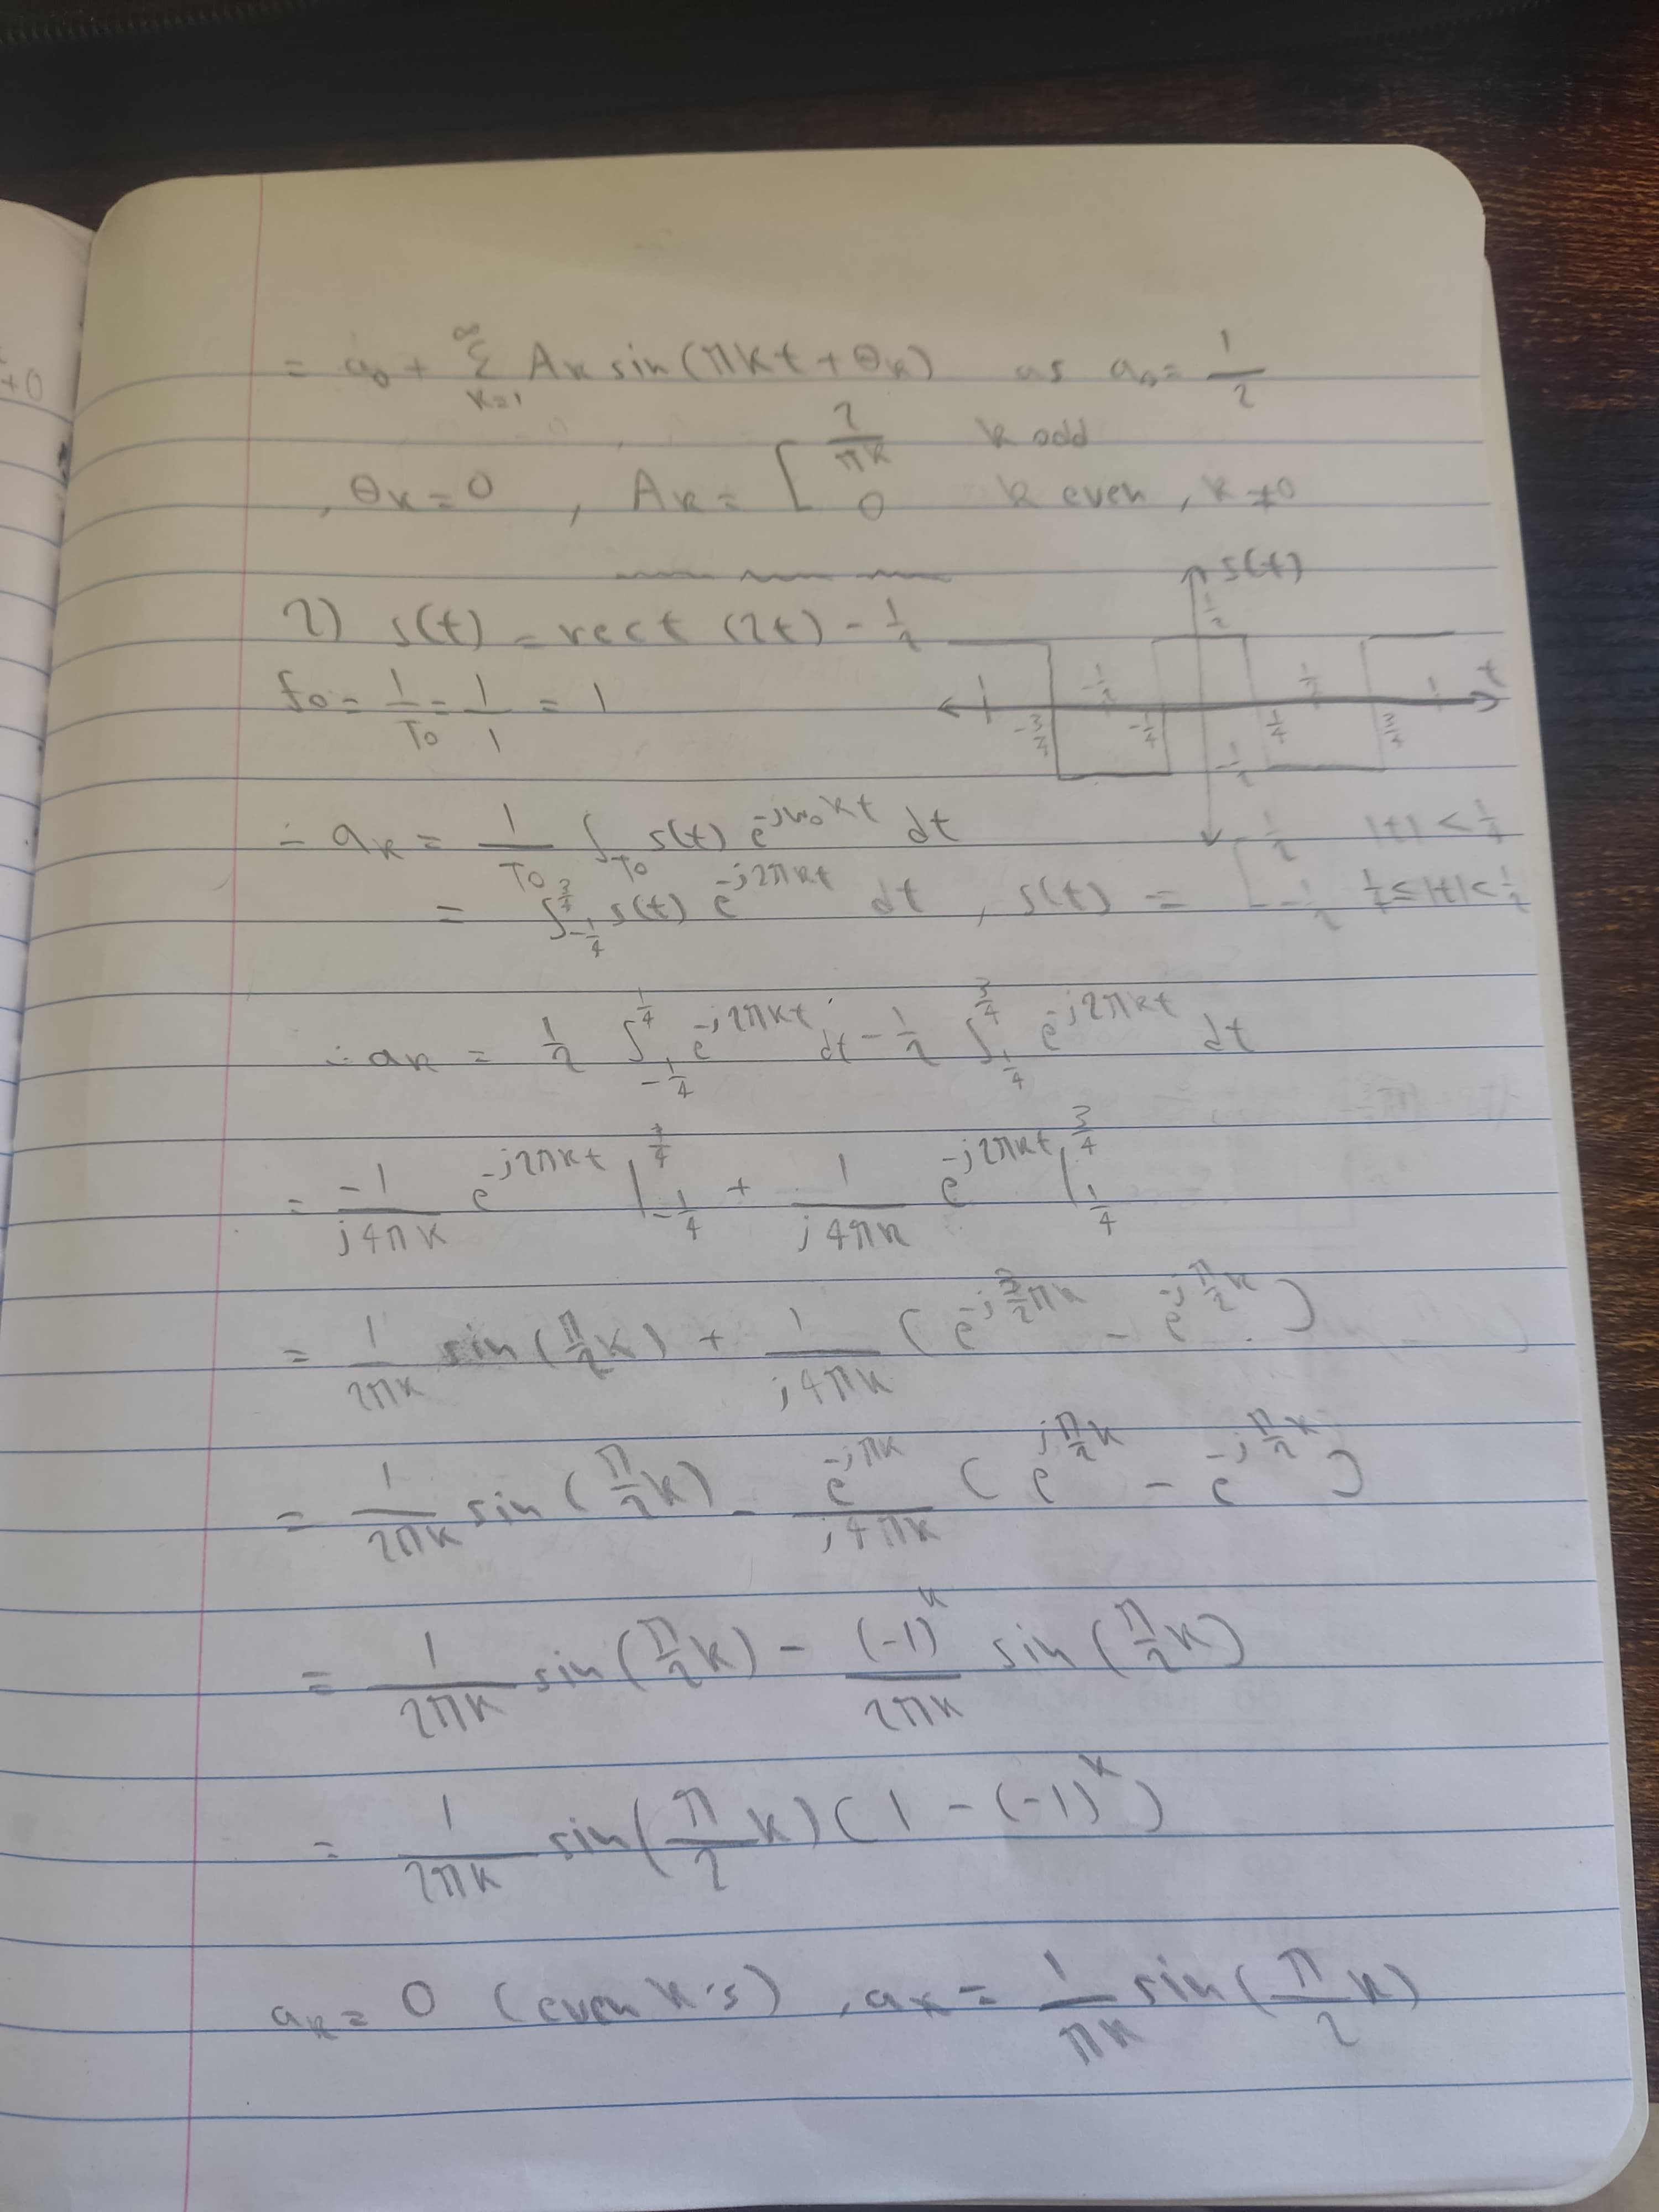 = a₀ + ∞Σk=1 Aₖ sin(πkt + θₖ) as a₀ = 1/2
, θₖ = 0 , Aₖ = [ 2/πk k odd
0 k even, k ≠ 0
2) s(t) = rect (2t) - 1/2
s(t) 1/2 -1/2 t
-3/4 -1/2 -1/4 1/4 1/2 3/4 1
f₀ = 1/T₀ = 1/1 = 1
∴ aₖ = 1/T₀ ∫T₀ s(t) e^(-jω₀kt) dt
= ∫_(-1/4)^(3/4) s(t) e^(-j2πkt) dt , s(t) = [ 1/2 |t| < 1/4
-1/2 1/4 ≤ |t| < 1/2
∴ aₖ = 1/2 ∫_(-1/4)^(1/4) e^(-j2πkt) dt - 1/2 ∫_(1/4)^(3/4) e^(-j2πkt) dt
= -1/(j4πk) e^(-j2πkt) |_(-1/4)^(1/4) + 1/(j4πk) e^(-j2πkt) |_(1/4)^(3/4)
= 1/(2πk) sin(π/2 k) + 1/(j4πk) (e^(-j3/2 πk) - e^(-jπ/2 k))
= 1/(2πk) sin(π/2 k) - e^(-jπk)/(j4πk) (e^(jπ/2 k) - e^(-jπ/2 k))
= 1/(2πk) sin(π/2 k) - (-1)^k/(2πk) sin(π/2 k)
= 1/(2πk) sin(π/2 k)(1 - (-1)^k)
aₖ = 0 (even k's) , aₖ = 1/(πk) sin(π/2 k)